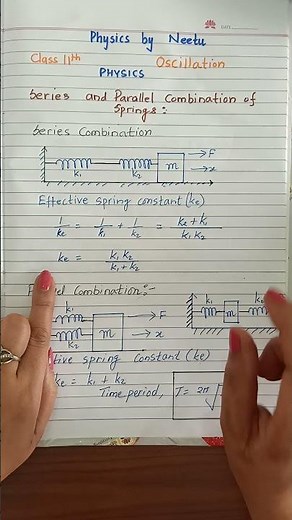 Physics by Neetu
Class 11th Oscillation
PHYSICS
Series and Parallel Combination of
Springs:
Series Combination
k₁ k₂ m → F
→ x
Effective spring constant (ke)
1/ke = 1/k₁ + 1/k₂ = k₂ + k₁ / k₁ k₂
ke = k₁ k₂ / k₁ + k₂
Combination:-
k₁ k₂ m → F → x
k₁ m
spring Constant (ke)
ke = k₁ + k₂
Time period, T = 2π √